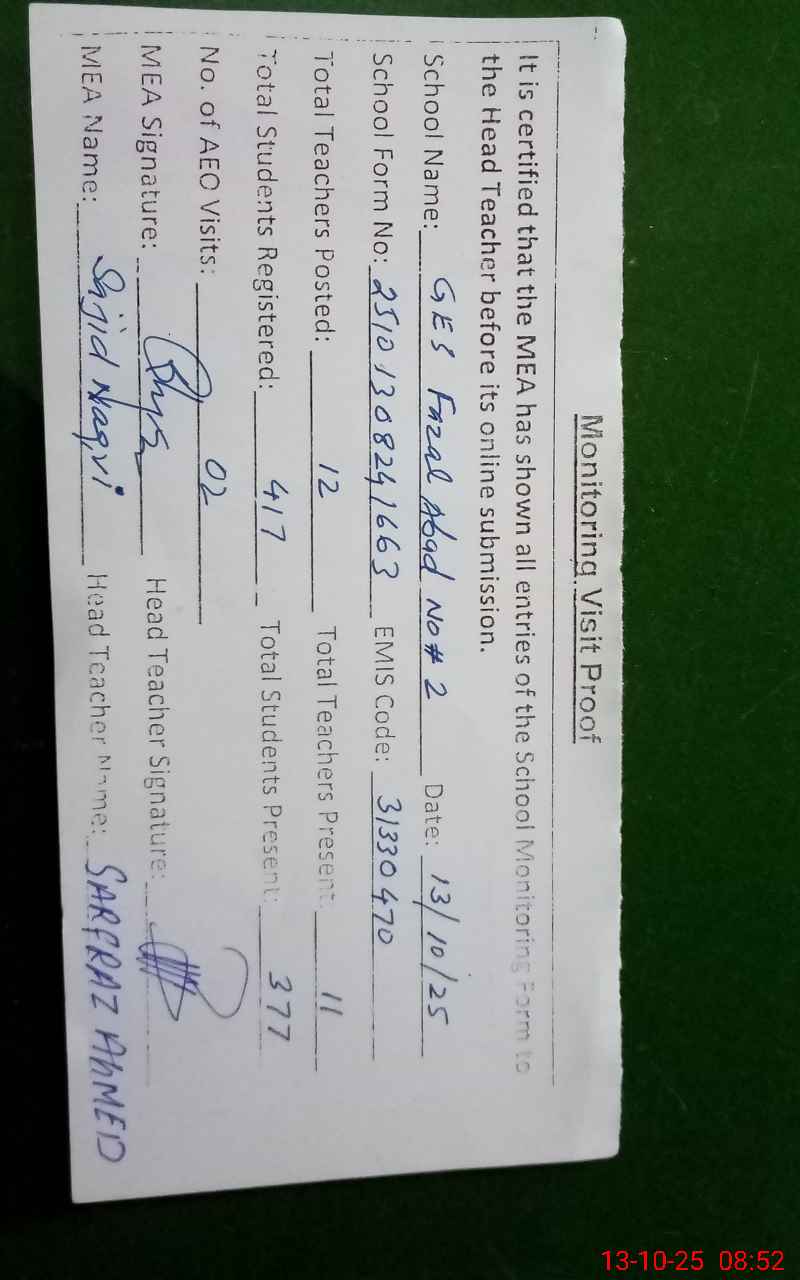 Monitoring Visit Proof
It is certified that the MEA has shown all entries of the School Monitoring Form to
the Head Teacher before its online submission.
School Name: GES Fazal Abad No # 2 Date: 13/10/25
School Form No: 25101308241663 EMIS Code: 31330470
Total Teachers Posted: 12 Total Teachers Present: 11
Total Students Registered: 417 Total Students Present: 377
No. of AEO Visits: 02
MEA Signature: Head Teacher Signature:
MEA Name: Sajid Naqvi Head Teacher Name: SARFRAZ AHMED
13-10-25 08:52